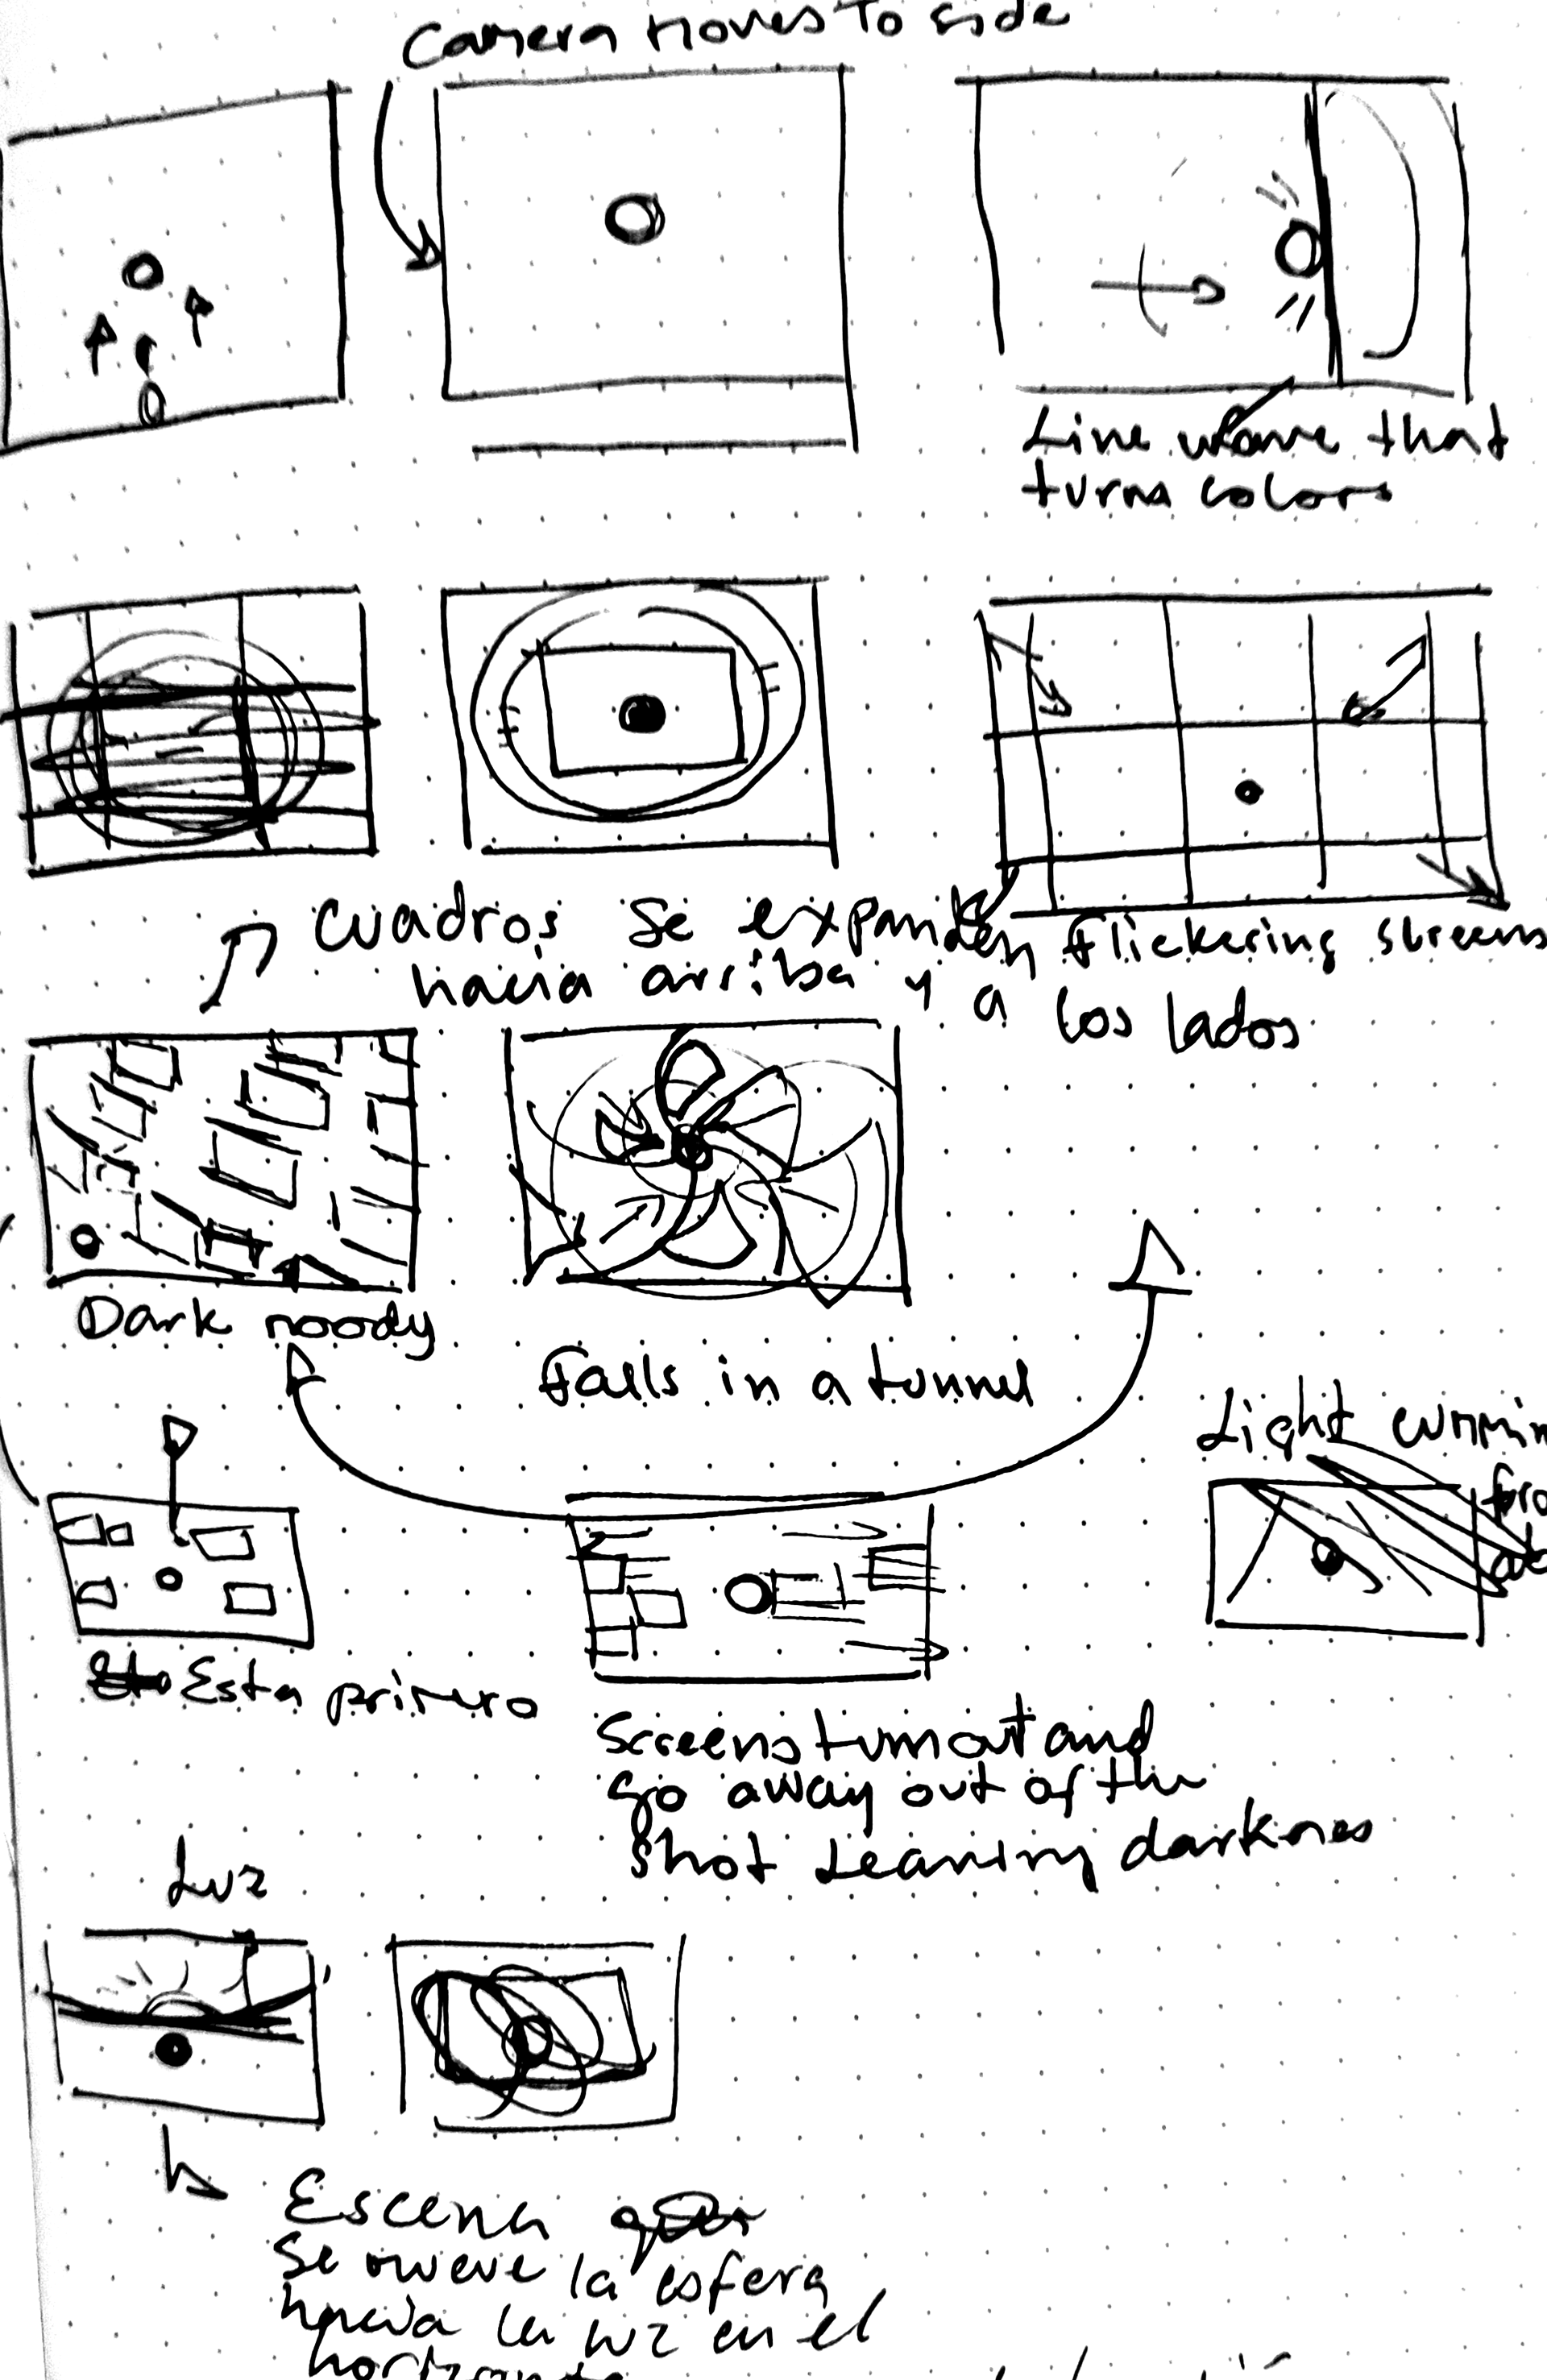 Camera moves to side
Line wave that
turns colors
Cuadros se expanden
hacia arriba y a los lados
Flickering screens
Dark moody
Falls in a tunnel
Light
Esta primero
Screens turn out and
go away out of the
shot leaving darkness
Luz
Escena
se mueve la esfera
hacia la luz en el